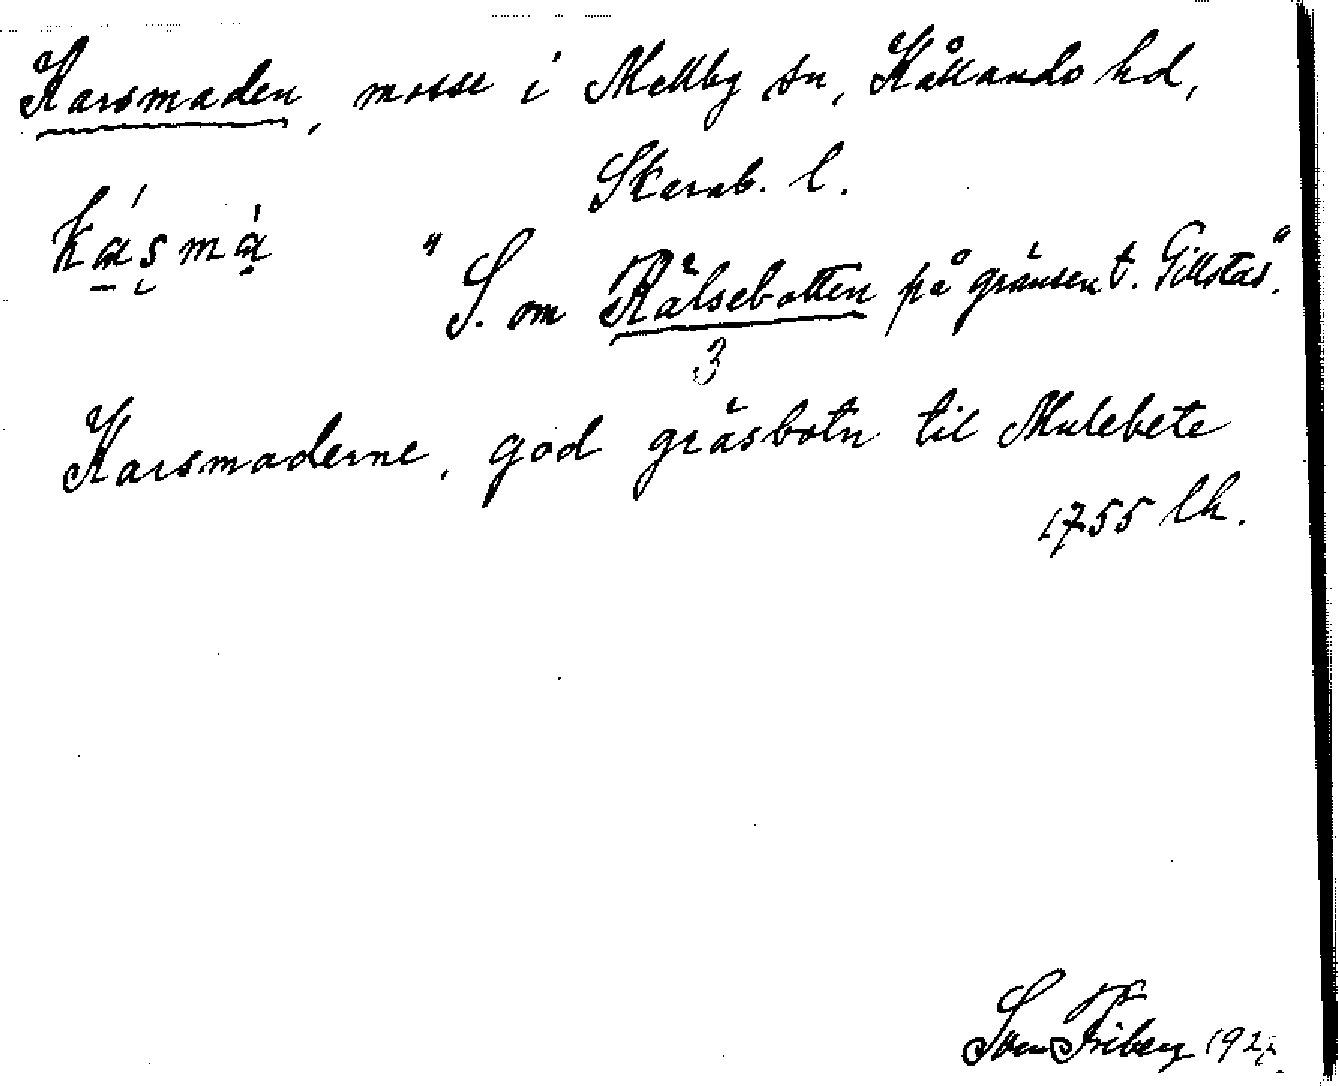 Karsmaden, mosse i Mellby sn, Kållands hd,
Skarab. l.
kásmà
"S. om Rälsebotten på gränsen t. Gillstad".
3
Karsmaderne, god gräsbotn til Mulebete
1755 lh.
Sven Friberg